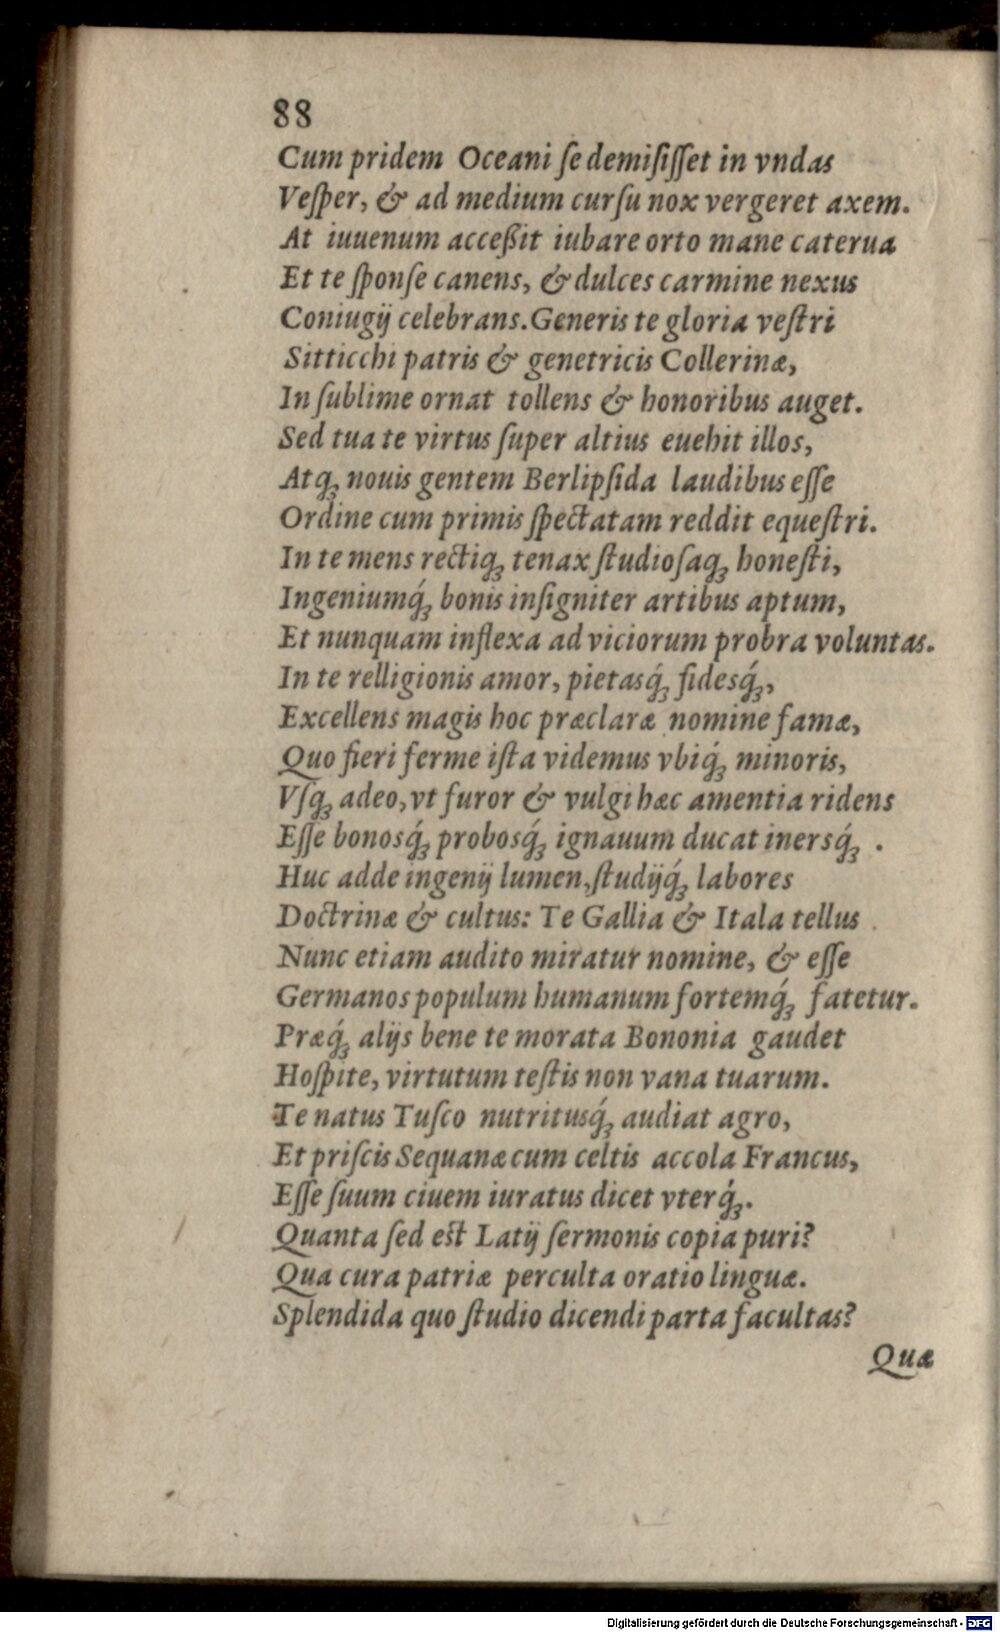 88
Cum pridem Oceani ſe demiſiſſet in vndas
Veſper, & ad medium curſu nox vergeret axem.
At iuuenum acceßit iubare orto mane caterua
Et te ſponſe canens, & dulces carmine nexus
Coniugij celebrans. Generis te gloria veſtri
Sitticchi patris & genetricis Collerinæ,
In ſublime ornat tollens & honoribus auget.
Sed tua te virtus ſuper altius euehit illos,
Atq́ꝫ nouis gentem Berlipſida laudibus eſſe
Ordine cum primis ſpectatam reddit equeſtri.
In te mens rectiqꝫ tenax ſtudioſaqꝫ honeſti,
Ingeniumq́ꝫ bonis inſigniter artibus aptum,
Et nunquam inflexa ad viciorum probra voluntas.
In te relligionis amor, pietasq́ꝫ fidesq́ꝫ,
Excellens magis hoc præclaræ nomine famæ,
Quo fieri ferme iſta videmus vbiq́ꝫ minoris,
Vſqꝫ adeo, vt furor & vulgi hæc amentia ridens
Eſſe bonosq́ꝫ probosq́ꝫ ignauum ducat inersq́ꝫ .
Huc adde ingenij lumen, ſtudijq́ꝫ labores
Doctrinæ & cultus: Te Gallia & Itala tellus
Nunc etiam audito miratur nomine, & eſſe
Germanos populum humanum fortemq́ꝫ fatetur.
Præq́ꝫ alijs bene te morata Bononia gaudet
Hoſpite, virtutum teſtis non vana tuarum.
Te natus Tuſco nutritusq́ꝫ audiat agro,
Et priſcis Sequanæ cum celtis accola Francus,
Eſſe ſuum ciuem iuratus dicet vterq́ꝫ.
Quanta ſed eſt Latij ſermonis copia puri?
Qua cura patriæ perculta oratio linguæ.
Splendida quo ſtudio dicendi parta facultas?
Quæ
Digitalisierung gefördert durch die Deutsche Forschungsgemeinschaft - DFG